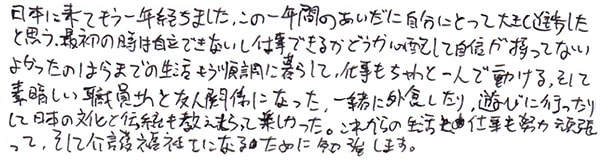 日本に来てもう一年経ちました,この一年間のあいだに自分にとって大きく進歩した
と思う.最初の時は自立できないし仕事できるかどうか心配して自信が持ってない
よかったのは今までの生活もう順調に暮らして,仕事もちゃんと一人で動ける,そして
素晴しい職員さんと友人関係になった,一緒に外食したり,遊びに行ったり
して日本の文化と伝統も教えもらって楽しかった。これからの生活も仕事も努力頑張
って,そして介護福祉士になるために勉強します。